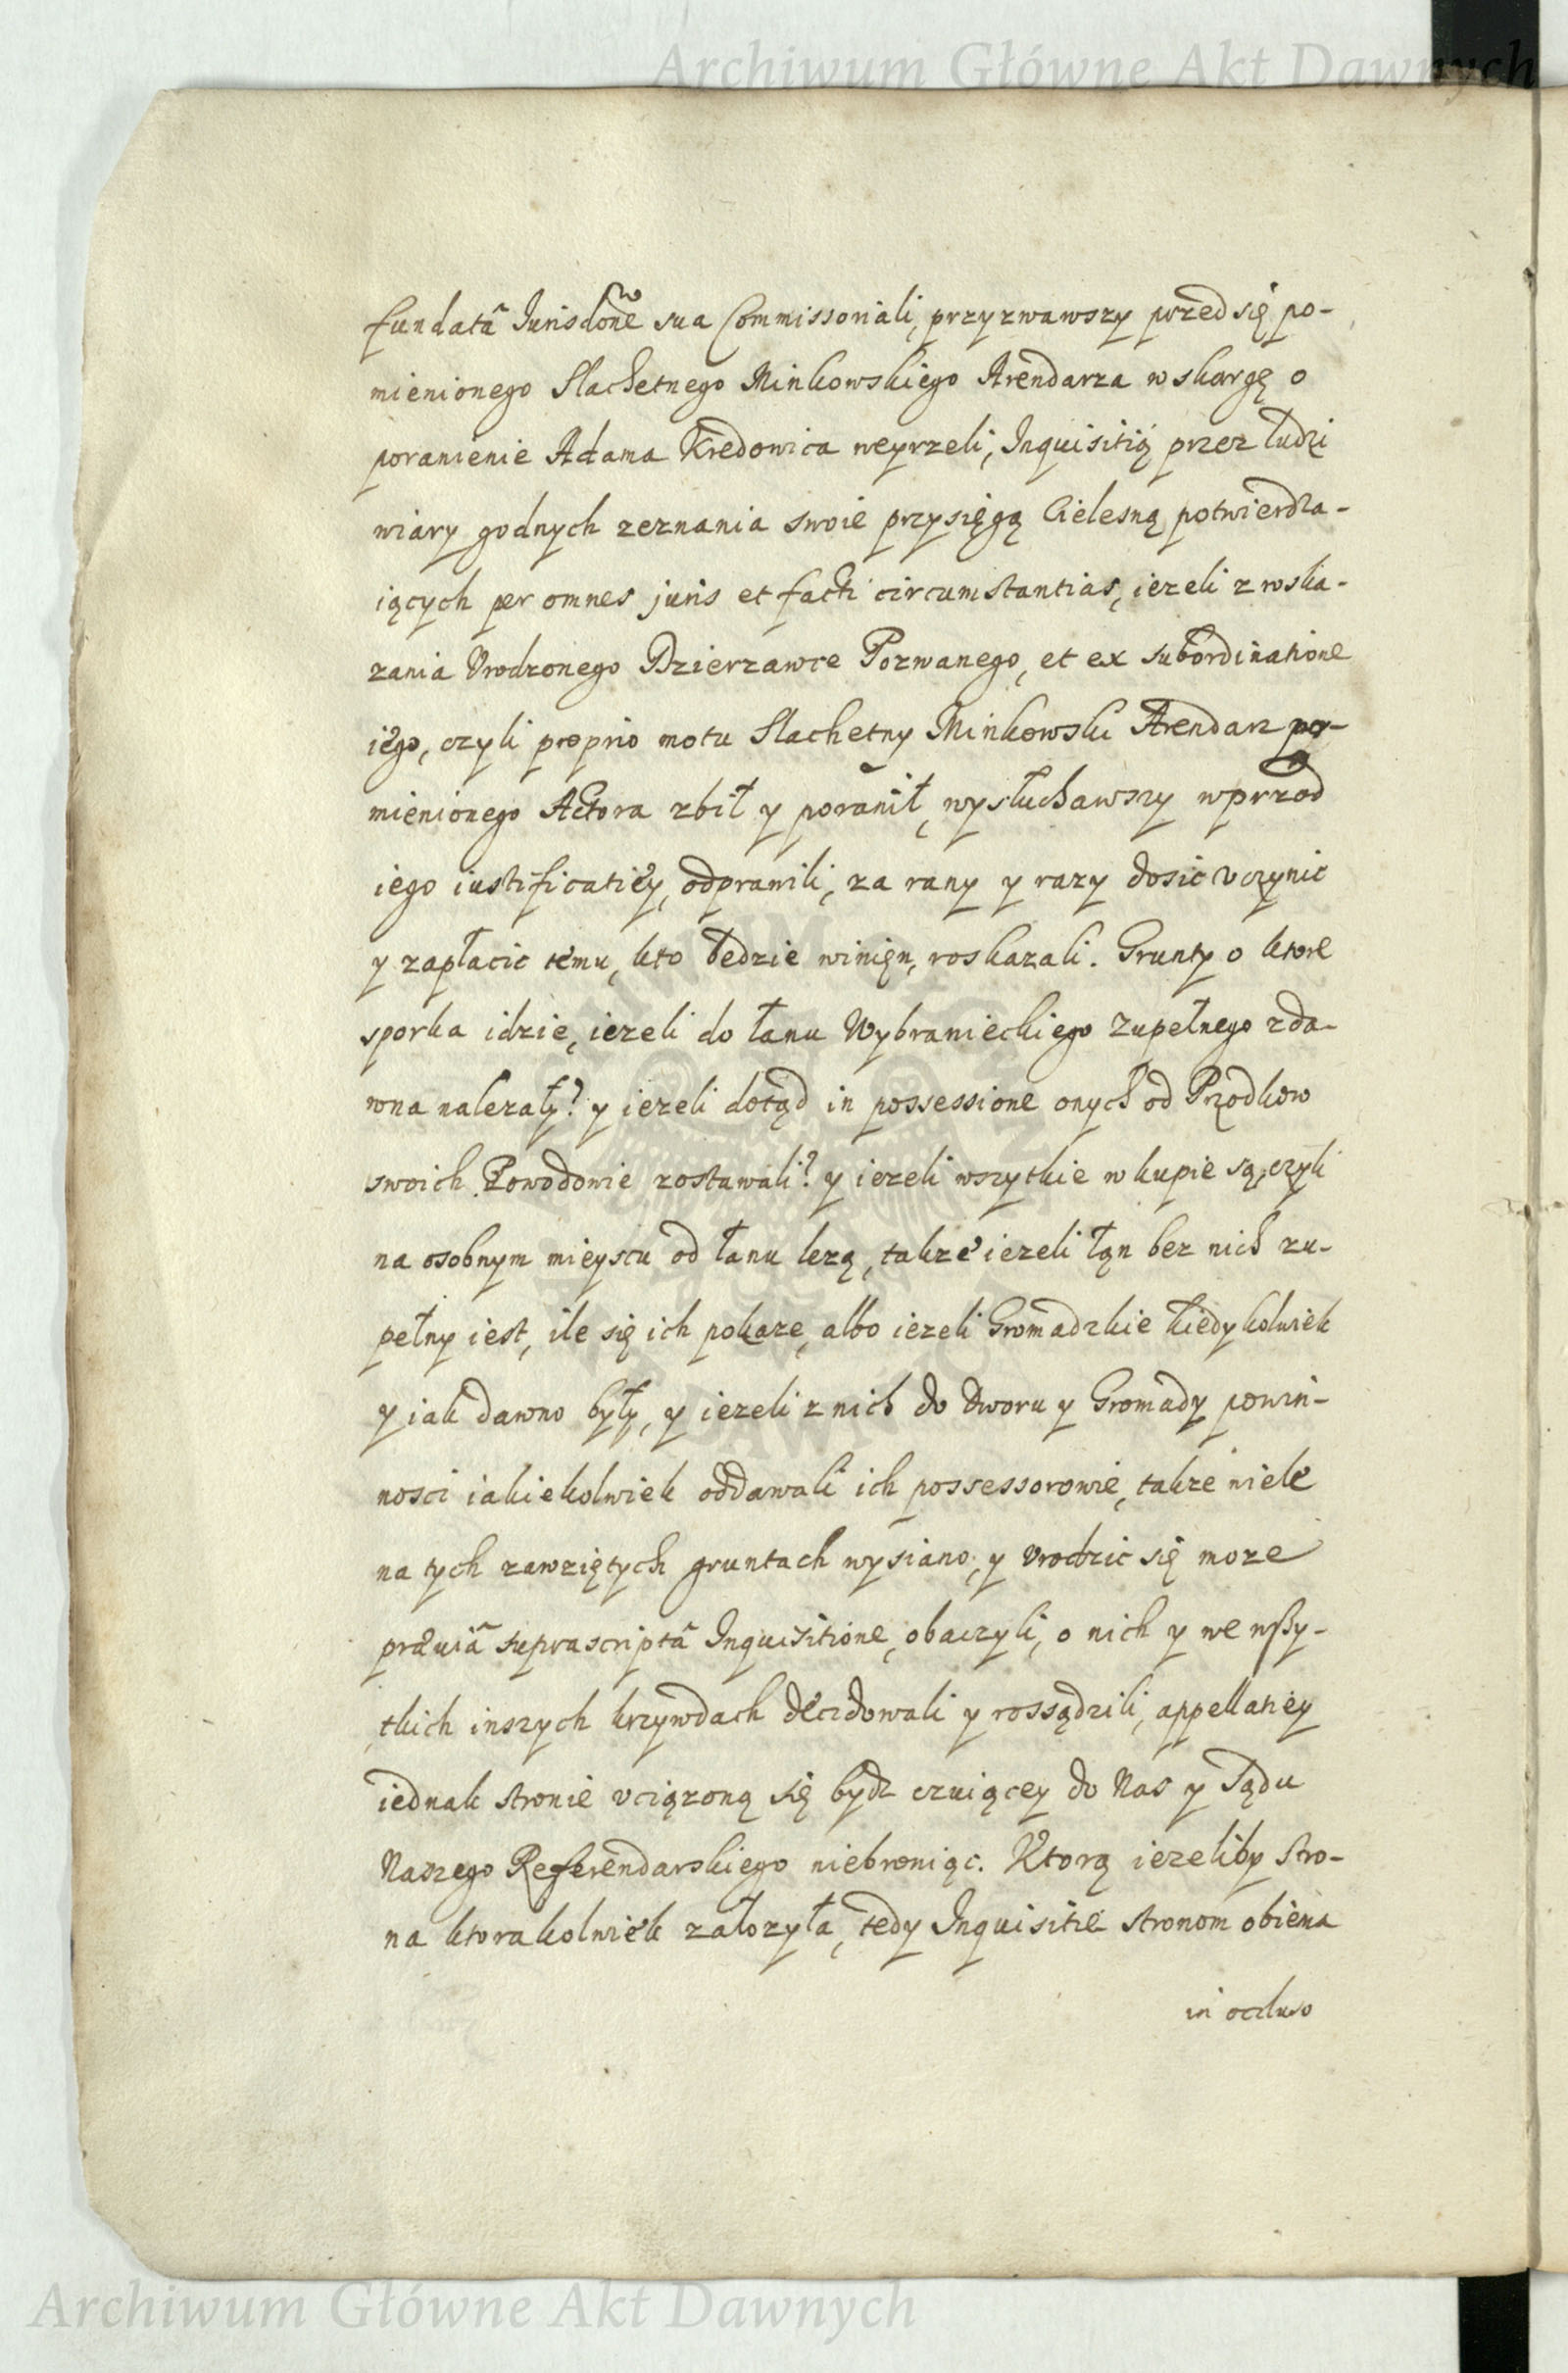 Archiwum Główne Akt Dawnych
fundatâ Jurisdoñe sua Commissoriali, przyzwawszy przed się po-
mienionego Slachetnego Minkowskiego Arendarza w skargę o
poranienie Adama Kredowica weyrzeli, Inquisitią przez ludzi
wiary godnych zeznania swoie przysięgą Cielesną potwierdza-
iących per omnes juris et facti circumstantias, iezeli z wska-
zania Vrodzonego Dzierzawce Pozwanego, et ex subordinatione
iego, czyli proprio motu Slachetny Minkowski Arendarz po-
mienionego Actora zbił y poranił, wysłuchawszy wprzod
iego iustificatiey, odprawili, za rany y razy dosic vczynic
y zapłacic temu, kto będzie winięn, roskazali. Grunty o ktore
sporka idzie, iezeli do łanu Wybranieckiego zupełnego zda-
wna nalezały? y iezeli dotąd in possessione onych od Przodkow
swoich Powodowie zostawali? y iezeli wszytkie w kupie są, czyli
na osobnym mieyscu od łanu lezą, takze iezeli łąn bez nich zu-
pełny iest, ile się ich pokaze, albo iezeli Gromadzkie kiedykolwiek
y iak dawno były, y iezeli z nich do Dworu y Gromady powin-
nosci iakiekolwiek oddawali ich possessorowie, takze wiele
na tych zawziętych gruntach wysiano, y vrodzic się moze
præuiâ suprascriptâ Inquisitione, obaczyli, o nich y we wszy-
tkich inszych krzywdach decidowali y rossądzili, appellatiey
iednak stronie vciązoną się bydz czuiącey do Nas y Sądu
Naszego Referendarskiego niebroniąc. Ktorą iezeliby stro-
na ktorakolwiek załozyła, tedy Inquisitie stronom obiema
in occluso
Archiwum Główne Akt Dawnych